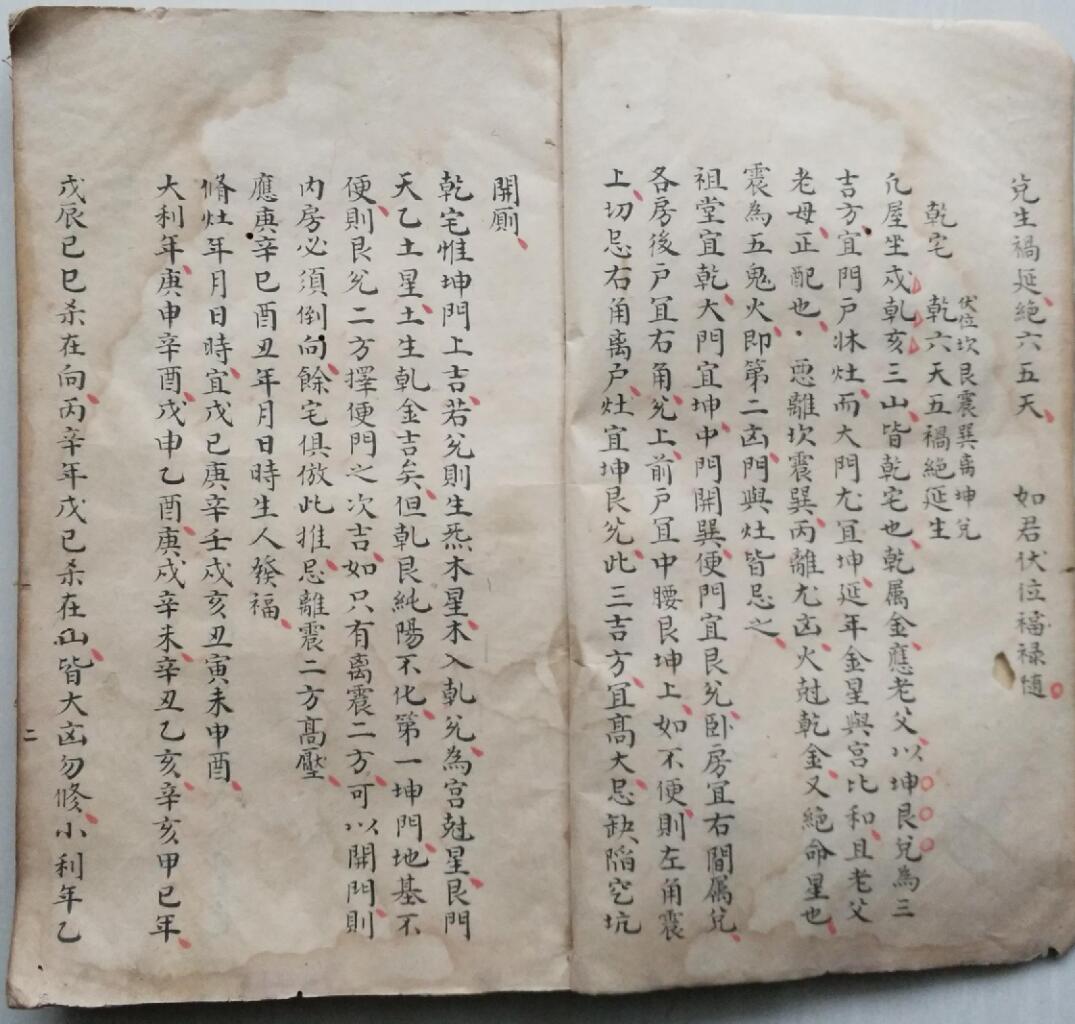 兌生禍延絕六五天　如君伏位福禄随
乾宅　乾六天五禍絕延生
伏位坎艮震巽离坤兌
凡屋坐戍乹亥三山皆乾宅也乾属金應老父以坤艮兌為三
吉方宜門户牀灶而大門尤冝坤延年金星與宮比和且老父
老母正配也惡離坎震巽丙離尤凶火尅乾金又絕命星也
震為五鬼火即第二凶門與灶皆忌之
祖堂宜乾大門宜坤中門開巽便門宜艮兌卧房宜右間属兌
各房後户冝右角兌上前戸冝中腰艮坤上如不便則左角震
上切忌右角離户灶宜坤艮兌此三吉方冝髙大忌缺陷空坑
開廁
乾宅惟坤門上吉若兌則生炁木星木入乹兌為宮尅星艮門
天乙土星土生乹金吉矣但乹艮純陽不化第一坤門地基不
便則艮兌二方擇便門之次吉如只有离震二方可以開門則
内房必須倒向餘宅俱倣此推忌離震二方髙壓
應庚辛巳酉丑年月日時生人發福
脩灶年月日時宜戊己庚辛壬戍亥丑寅未申酉
大利年庚申辛酉戊申乙酉庚戍辛未辛丑乙亥辛亥甲巳年
戊辰己巳杀在向丙辛年戊己杀在山皆大凶勿修小利年乙
二